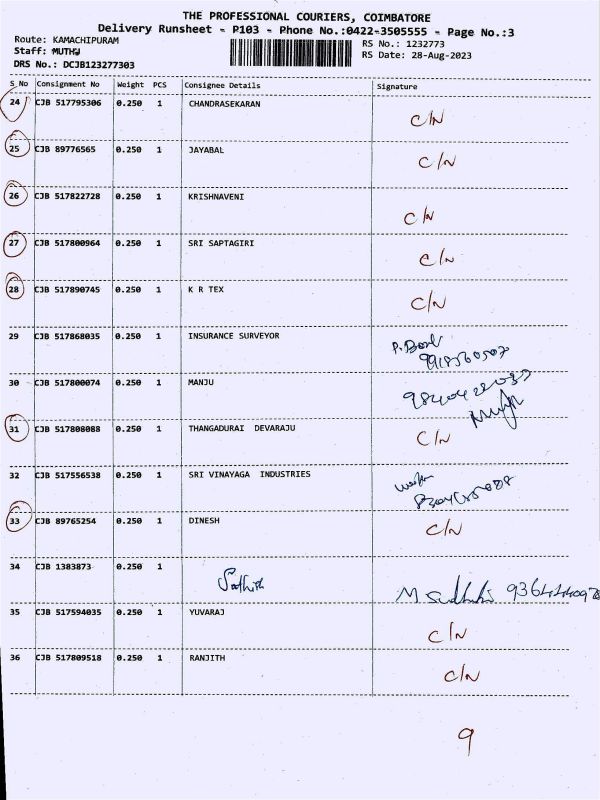 THE PROFESSIONAL COURIERS, COIMBATORE
Delivery Runsheet - P103 - Phone No.:0422-3505555 - Page No.:3
Route: KAMACHIPURAM RS No.: 1232773
Staff: MUTHU RS Date: 28-Aug-2023
DRS No.: DCJB123277303
S_No Consignment No Weight PCS Consignee Details Signature
24 CJB 517795306 0.250 1 CHANDRASEKARAN C/N
25 CJB 89776565 0.250 1 JAYABAL C/N
26 CJB 517822728 0.250 1 KRISHNAVENI C/N
27 CJB 517800964 0.250 1 SRI SAPTAGIRI C/N
28 CJB 517890745 0.250 1 K R TEX C/N
29 CJB 517868035 0.250 1 INSURANCE SURVEYOR
30 CJB 517800074 0.250 1 MANJU
31 CJB 517808088 0.250 1 THANGADURAI DEVARAJU C/N
32 CJB 517556538 0.250 1 SRI VINAYAGA INDUSTRIES
33 CJB 89765254 0.250 1 DINESH C/N
34 CJB 1383873 0.250 1
35 CJB 517594035 0.250 1 YUVARAJ C/N
36 CJB 517809518 0.250 1 RANJITH C/N
9